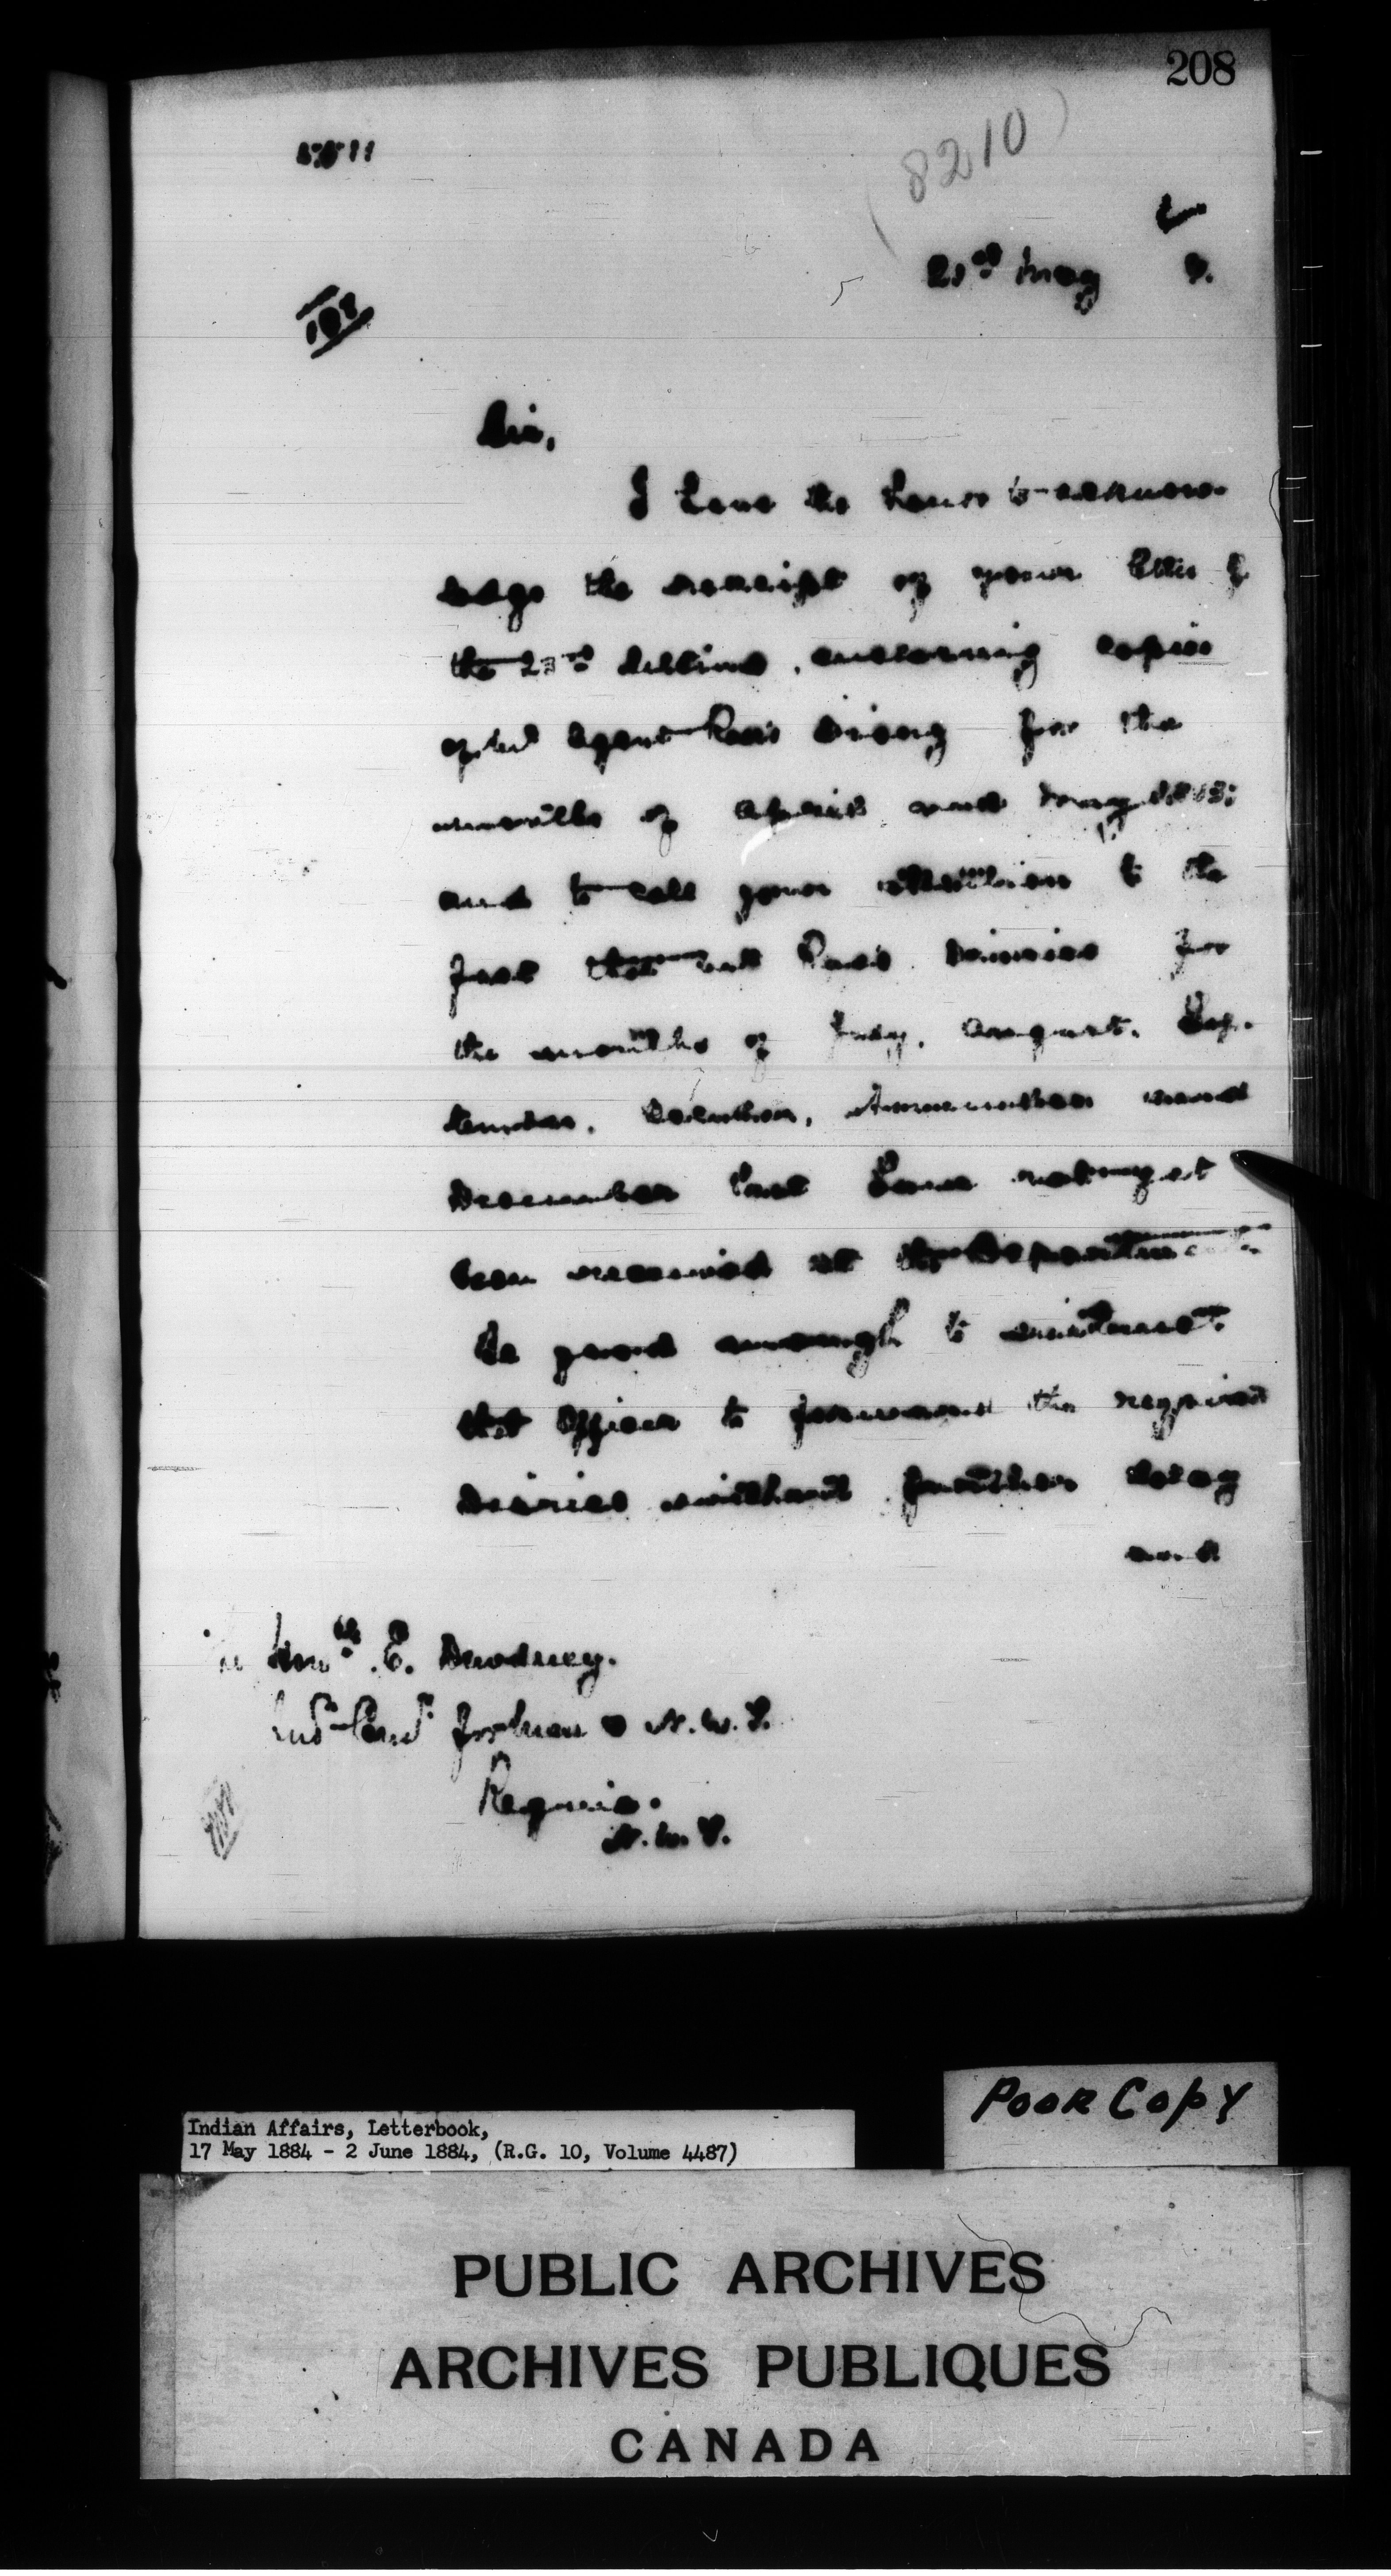 208
(8210)
21st May
Sir,
I have the honor to acknow-
ledge the receipt of your letter of
the 23rd Ultimo, enclosing copies
of Ind Agent Rae's Diary for the
months of April and May 1883;
and to call your attention to the
fact that Mr Rae's Diaries for
the months of July, August, Sep-
tember, October, November and
December last have not yet
been received at the Department.
Be good enough to instruct
that Officer to forward the required
Diaries without further delay
and
Honble E. Dewdney.
Ind Comr Manitoba & N.W.T.
Regina.
N.W.T.
Poor Copy
Indian Affairs, Letterbook,
17 May 1884 - 2 June 1884, (R.G. 10, Volume 4487)
PUBLIC ARCHIVES
ARCHIVES PUBLIQUES
CANADA